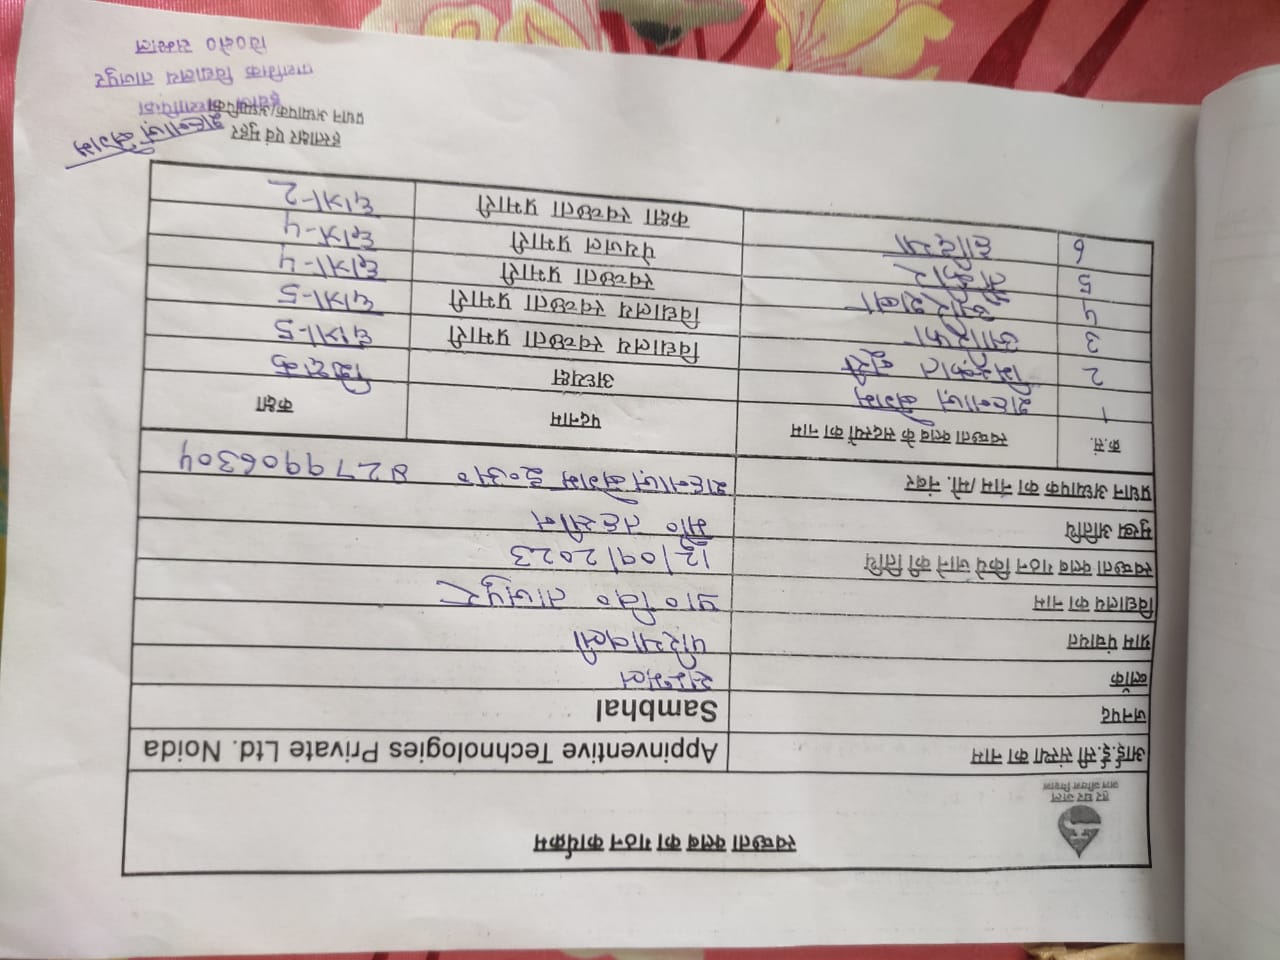 स्वच्छता क्लब का गठन कार्यक्रम
हर घर जल
जल जीवन मिशन
आई.ई.सी संस्था का नाम Appinventive Technologies Private Ltd. Noida
जनपद Sambhal
ब्लॉक सम्भल
ग्राम पंचायत
विद्यालय का नाम प्रा० वि० ताजपुर
स्वच्छता क्लब गठन किये जाने की तिथि 12/09/2023
मुख्य अतिथि मो० तहसीन
प्रधान अध्यापक का नाम /मो. नंबर शहनाज़ बेगम इ०अ० 8279906304
क्र.सं. स्वच्छता क्लब के सदस्यों का नाम पदनाम कक्षा
1 शहनाज़ बेगम अध्यक्ष शिक्षक
2 विद्यालय स्वच्छता प्रभारी छात्रा-5
3 विद्यालय स्वच्छता प्रभारी छात्रा-5
4 स्वच्छता प्रभारी छात्रा-4
5 पेयजल प्रभारी छात्र-4
6 हादिया कक्षा स्वच्छता प्रभारी छात्रा-2
हस्ताक्षर एवं मुहर
शहनाज़ बेगम
प्रधान अध्यापक/अध्यापिका
प्राथमिक विद्यालय ताजपुर
वि०क्षे० सम्भल